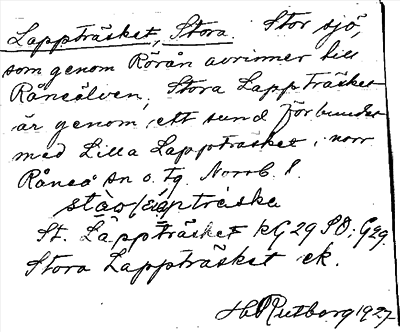 Lappträsket, Stora. Stor sjö,
som genom Rörån avrinner till
Råneälven, Stora Lappträsket
är genom ett sund förbundet
med Lilla Lappträsket, norr
Råneå sn o. tg. Norrb. l.
St. Lappträsket KG 29 SO; G29.
Stora Lappträsket ek.
Rutberg 1927